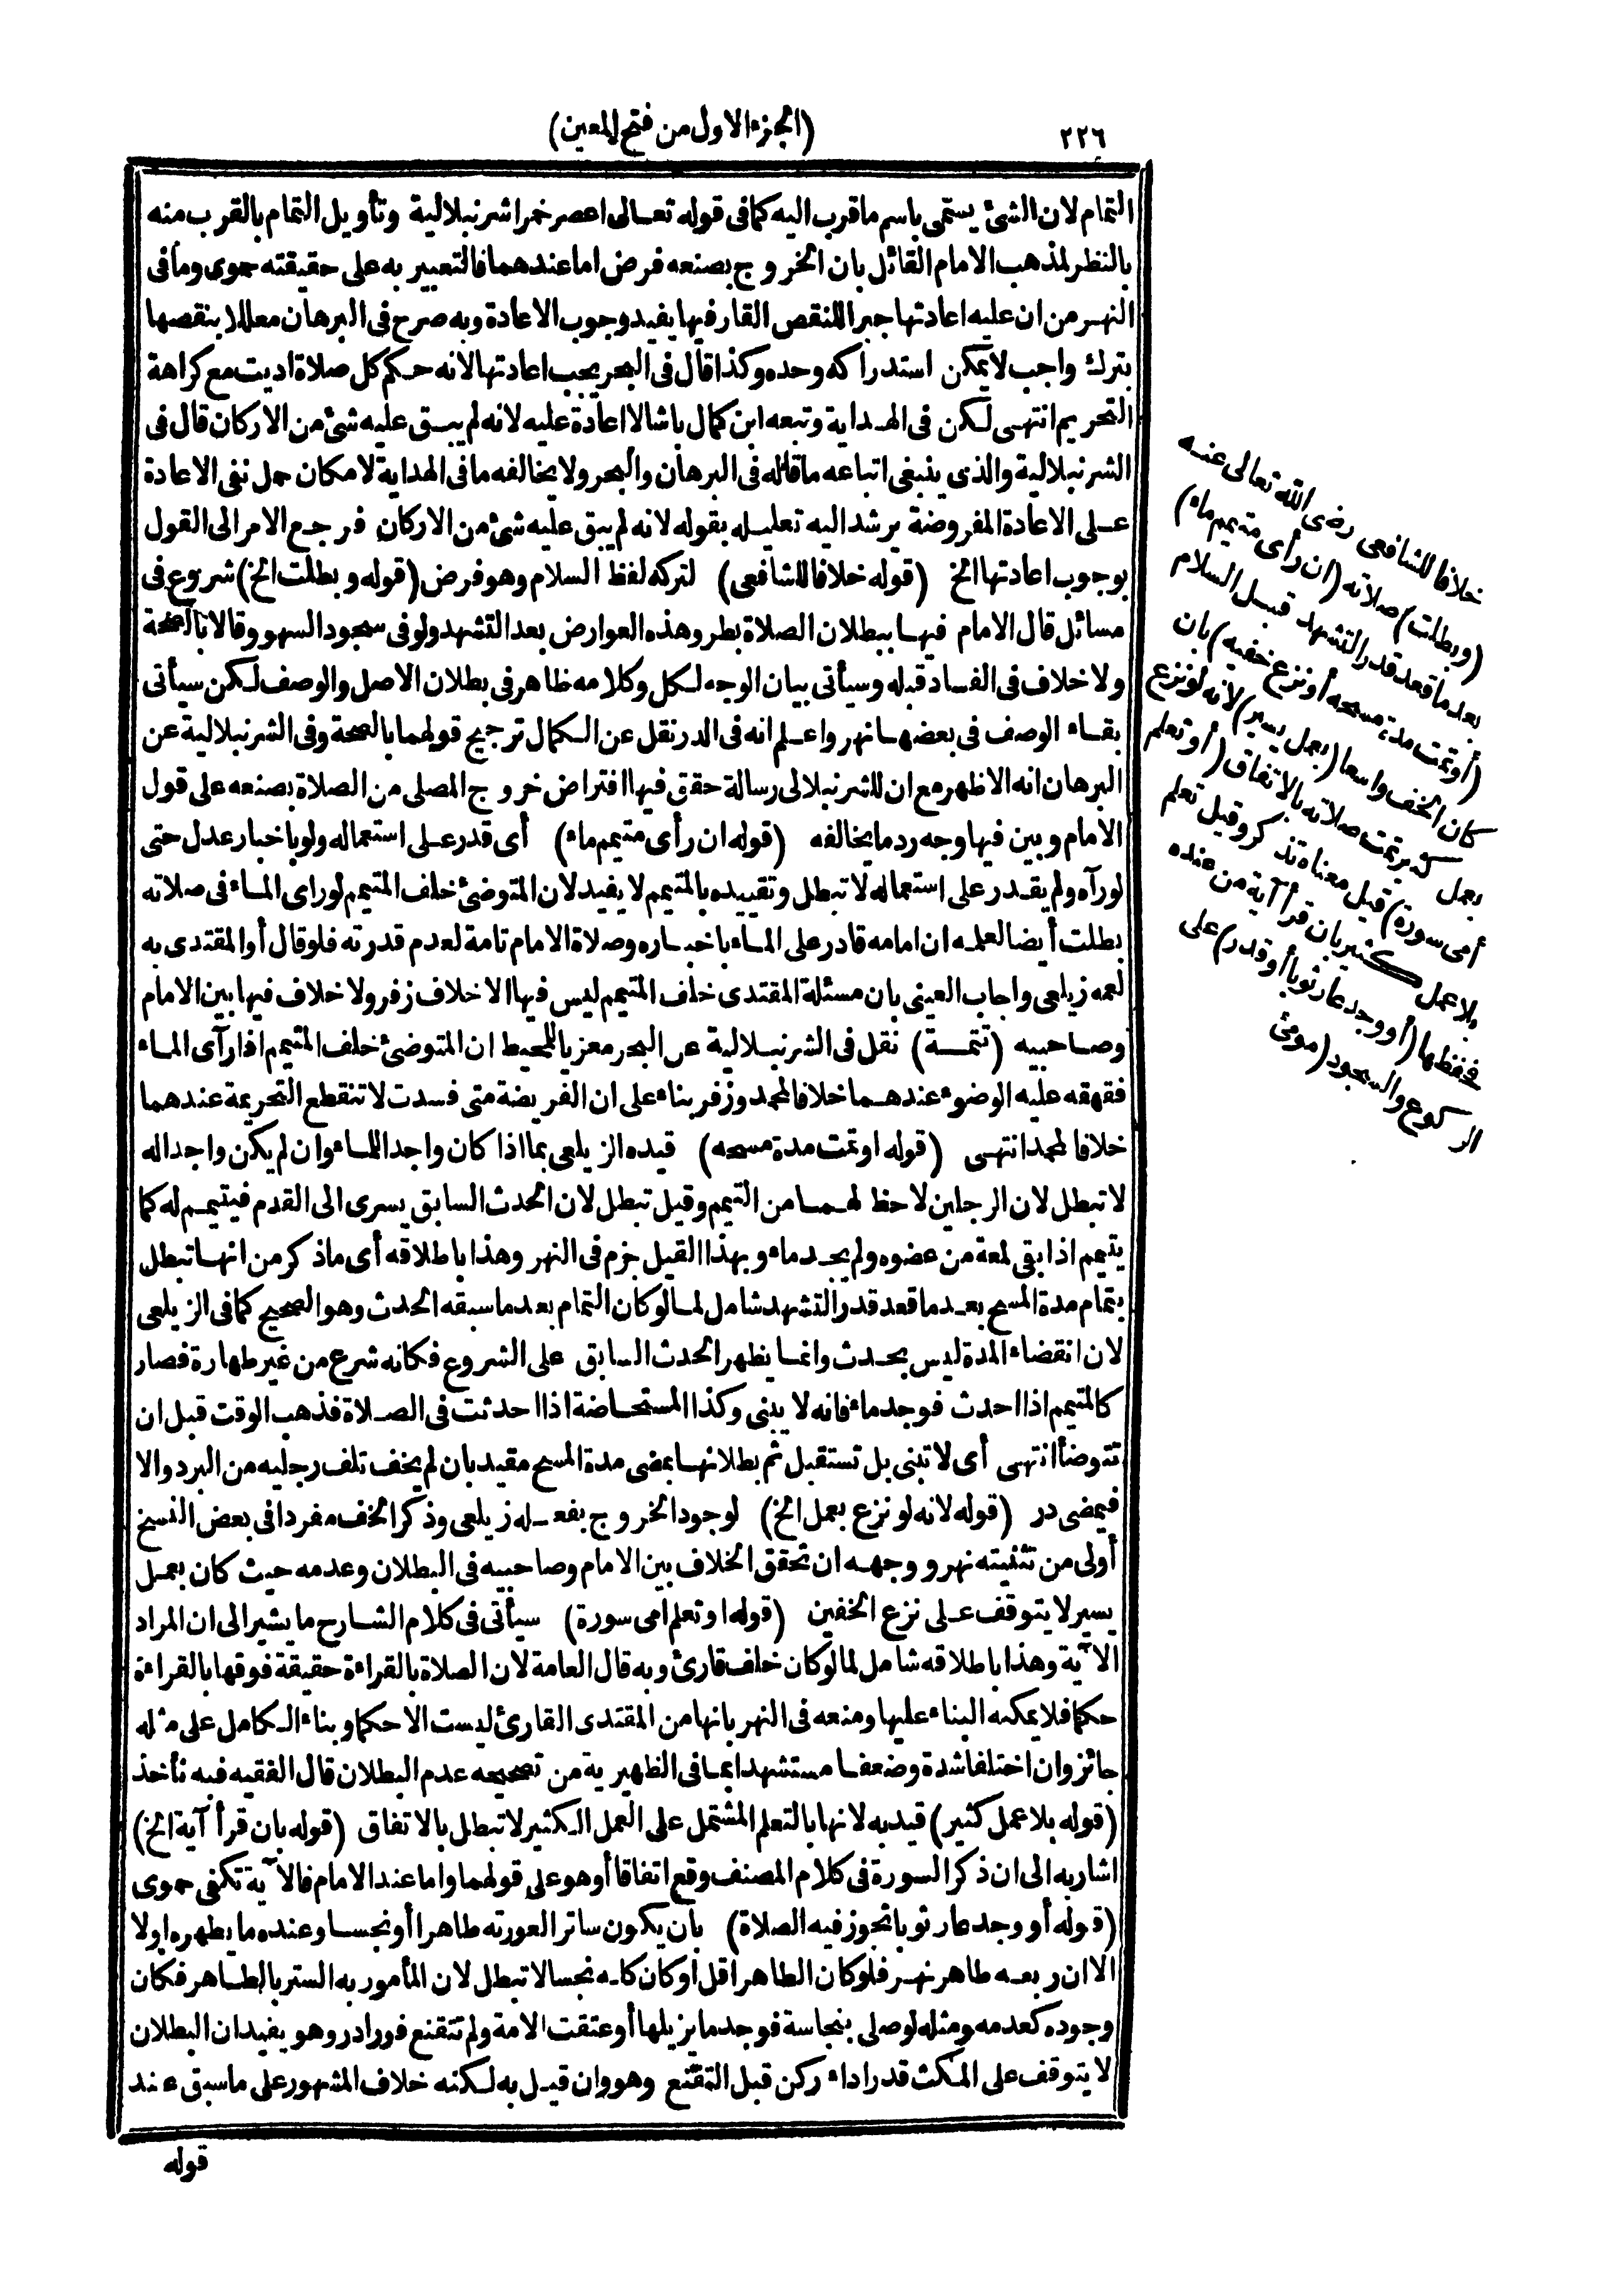 ٢٢٦
(الجزء الاول من فتح المعين)
التمام لان الشئ يسمى باسم ما قرب اليه كما فى قوله تعالى اعصر خمرا شرنبلالية وتأويل التمام بالقرب منه
بالنظر لمذهب الامام القائل بان الخروج بصنعه فرض اما عندهما فالتعبير به على حقيقته حموى وما فى
النهر من ان عليه اعادتها جبرا للنقص القار فيها يفيد وجوب الاعادة وبه صرح فى البرهان معللا بنقصها
بترك واجب لا يمكن استدراكه وحده وكذا قال فى البحر يجب اعادتها لانه حكم كل صلاة اديت مع كراهة
التحريم انتهى لكن فى الهداية وتبعه ابن كمال باشا لا اعادة عليه لانه لم يبق عليه شئ من الاركان قال فى
الشرنبلالية والذى ينبغى اتباعه ما قاله فى البرهان والبحر ولا يخالفه ما فى الهداية لامكان حمل نفى الاعادة
على الاعادة المفروضة يرشد اليه تعليله بقوله لانه لم يبق عليه شئ من الاركان فرجع الامر الى القول
بوجوب اعادتها الخ (قوله خلافا للشافعى) لتركه لفظ السلام وهو فرض (قوله وبطلت الخ) شروع فى
مسائل قال الامام فيها ببطلان الصلاة بطروهذه العوارض بعد التشهد ولو فى سجود السهو وقالا بالصحة
ولا خلاف فى الفساد قبله وسيأتى بيان الوجه لكل وكلامه ظاهر فى بطلان الاصل والوصف لكن سيأتى
بقاء الوصف فى بعضها نهر واعلم انه فى الدر نقل عن الكمال ترجيح قولهما بالصحة وفى الشرنبلالية عن
البرهان انه الاظهر مع ان للشرنبلالى رسالة حقق فيها افتراض خروج المصلى من الصلاة بصنعه على قول
الامام وبين فيها وجه رد ما يخالفه (قوله ان رأى متيمم ماء) أى قدر على استعماله ولو باخبار عدل حتى
لو رآه ولم يقدر على استعماله لا تبطل وتقييده بالمتيمم لا يفيد لان المتوضئ خلف المتيمم لو راى الماء فى صلاته
بطلت أيضا لعلمه ان امامه قادر على الماء باخباره وصلاة الامام تامة لعدم قدرته فلو قال أو المقتدى به
لعمه زيلعى واجاب العينى بان مسئلة المقتدى خلف المتيمم ليس فيها الا خلاف زفر ولا خلاف فيها بين الامام
وصاحبيه (تتمة) نقل فى الشرنبلالية عن البحر معزيا للمحيط ان المتوضئ خلف المتيمم اذا رآى الماء
فقهقه عليه الوضوء عندهما خلافا لمحمد وزفر بناء على ان الفريضة متى فسدت لا تنقطع التحريمة عندهما
خلافا لمحمد انتهى (قوله او تمت مدة مسحه) قيده الزيلعى بما اذا كان واجدا للماء وان لم يكن واجدا له
لا تبطل لان الرجلين لا حظ لهما من التيمم وقيل تبطل لان الحدث السابق يسرى الى القدم فيتيمم له كما
يتيمم اذا بقى لمعة من عضوه ولم يجد ماء وبهذا القيل جزم فى النهر وهذا باطلاقه أى ما ذكر من انها تبطل
بتمام مدة المسح بعد ما قعد قدر التشهد شامل لما لو كان التمام بعد ما سبقه الحدث وهو الصحيح كما فى الزيلعى
لان انقضاء المدة ليس بحدث وانما يظهر الحدث السابق على الشروع فكانه شرع من غير طهارة فصار
كالمتيمم اذا احدث فوجد ماء فانه لا يبنى وكذا المستحاضة اذا احدثت فى الصلاة فذهب الوقت قبل ان
تتوضأ انتهى أى لا تبنى بل تستقبل ثم بطلانها بمضى مدة المسح مقيد بان لم يخف تلف رجليه من البرد والا
فيمضى در (قوله لانه لو نزع بعمل الخ) لوجود الخروج بفعله زيلعى وذكر الخف مفردا فى بعض النسخ
أولى من تثنيته نهر ووجهه ان تحقق الخلاف بين الامام وصاحبيه فى البطلان وعدمه حيث كان بعمل
يسير لا يتوقف على نزع الخفين (قوله او تعلم امى سورة) سيأتى فى كلام الشارح ما يشير الى ان المراد
الآية وهذا باطلاقه شامل لما لو كان خلف قارئ وبه قال العامة لان الصلاة بالقراءة حقيقة فوقها بالقراءة
حكما فلا يمكنه البناء عليها ومنعه فى النهر بانها من المقتدى القارئ ليست الا حكما وبناء الكامل على مثله
جائز وان اختلفا شدة وضعفا مستشهدا بما فى الظهيرية من تصحيحه عدم البطلان قال الفقيه فبه نأخذ
(قوله بلا عمل كثير) قيد به لانها بالتعلم المشتمل على العمل الكثير لا تبطل بالاتفاق (قوله بان قرأ آية الخ)
اشار به الى ان ذكر السورة فى كلام المصنف وقع اتفاقا أو هو على قولهما واما عند الامام فالآية تكفى حموى
(قوله أو وجد عار ثوبا تجوز فيه الصلاة) بان يكون ساترا لعورته طاهرا أو نجسا وعنده ما يطهره اولا
الا ان ربعه طاهر نهر فلو كان الطاهر اقل او كان كله نجسا لا تبطل لان المأمور به الستر بالطاهر فكان
وجوده كعدمه ومثله لو صلى بنجاسة فوجد ما يزيلها أو عتقت الامة ولم تتقنع فورا در وهو يفيد ان البطلان
لا يتوقف على المكث قدر اداء ركن قبل التقنع وهو وان قيل به لكنه خلاف المشهور على ما سبق عند
قوله
خلافا للشافعى رضى الله تعالى عنه
(وبطلت) صلاته (ان رأى متيمم ماء)
بعد ما قعد قدر التشهد قبل السلام
(أو تمت مدة مسحه أو نزع خفيه) بان
كان الخف واسعا (بعمل يسير) لانه لو نزع
بعمل كثير تمت صلاته بالاتفاق (أو تعلم
أمى سورة) قيل معناه تذكر وقيل تعلم
بلا عمل كثير بان قرأ آية من عنده
فحفظها (أو وجد عار ثوبا أو قدر) على
الركوع والسجود (مومئ